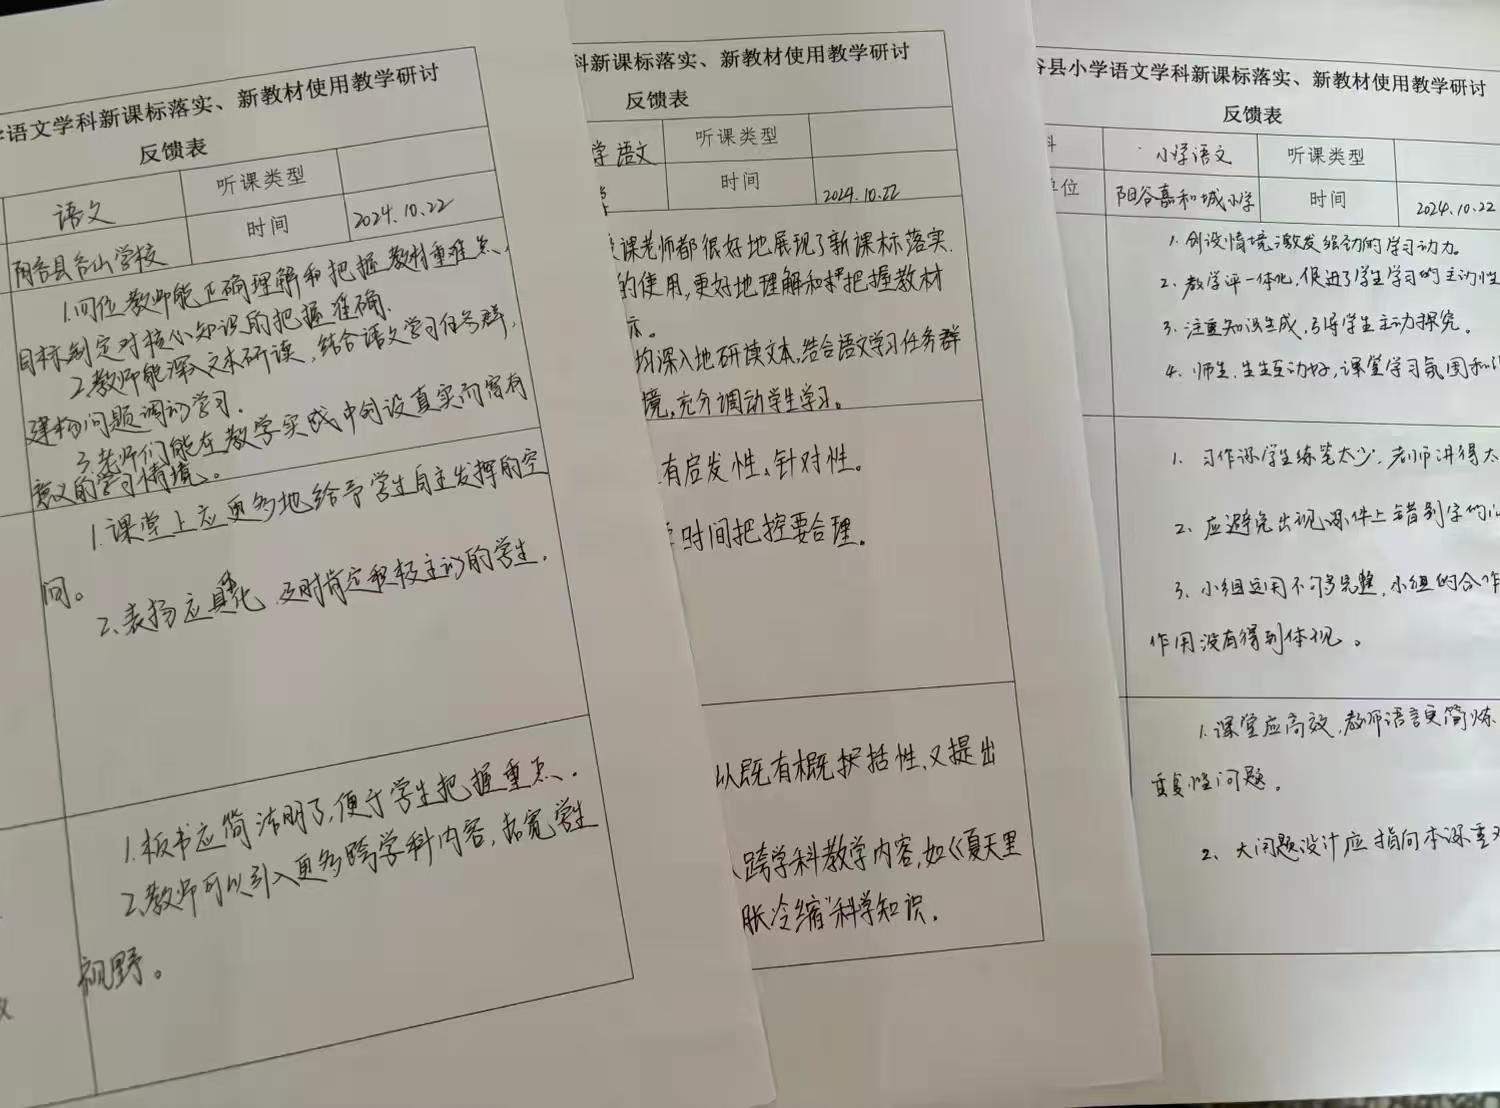 学语文学科新课标落实、新教材使用教学研讨
反馈表
语文
听课类型
阳谷县谷山学校
时间
2024.10.22
1.四位教师能正确理解和把握教材重难点,
目标制定对核心知识的把握准确.
2.教师能深入文本研读,结合语文学习任务群,
建构问题调动学习.
3.老师们能在教学实践中创设真实而富有
意义的学习情境。
1.课堂上应更多地给予学生自主发挥的空
间。
2.表扬应具体化,及时肯定积极主动的学生.
1.板书应简洁明了,便于学生把握重点.
2.教师可以引入更多跨学科内容,拓宽学生
视野。
科新课标落实、新教材使用教学研讨
反馈表
学语文
听课类型
时间
2024.10.22
课老师都很好地展现了新课标落实.
的使用,更好地理解和把握教材
示.
均深入地研读文本,结合语文学习任务群
境,充分调动学生学习。
有启发性、针对性。
时间把控要合理.
以既有概括性,又提出
跨学科教学内容,如《夏天里
胀冷缩"科学知识.
谷县小学语文学科新课标落实、新教材使用教学研讨
反馈表
科
小学语文
听课类型
单位
阳谷嘉和城小学
时间
2024.10.22
1.创设情境,激发主动的学习动力。
2.教学评一体化,促进了学生学习的主动性
3.注重知识生成,引导学生主动探究。
4.师生.生生互动好,课堂学习氛围和
1.习作课学生练笔太少,老师讲得太
2.应避免出现课件上错别字的
3.小组运用不够完整,小组的合作
作用没有得到体现。
1.课堂应高效,教师语言更简炼
重复性问题。
2、大问题设计应指向本课重